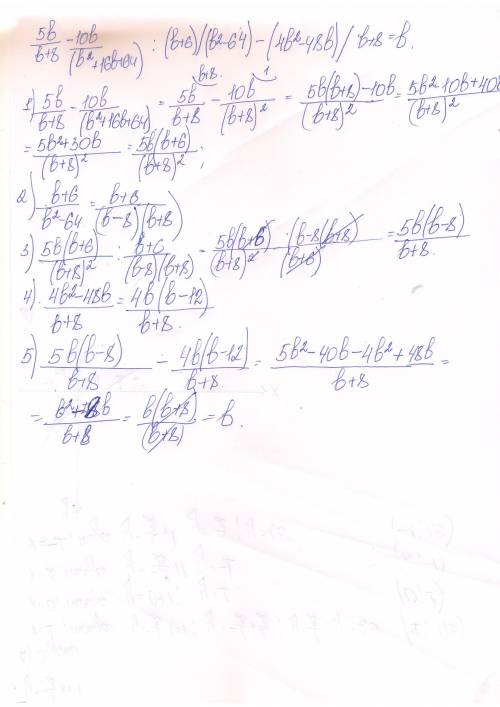 5b/(b+8) - 10b/(b²+16b+64) : (b+6)/(b²-64) - (4b²-48b)/ b+8 = b.
1) 5b/(b+8) - 10b/(b²+16b+64) = 5b/(b+8) - 10b/(b+8)² = (5b(b+8)-10b)/(b+8)² = (5b²-10b+40b)/(b+8)²
= (5b²+30b)/(b+8)² = 5b(b+6)/(b+8)² ;
2) (b+6)/(b²-64) = (b+6)/((b-8)(b+8))
3) 5b(b+6)/(b+8)² : (b+6)/((b-8)(b+8)) = 5b(b+6)·(b-8)(b+8)/((b+8)²(b+6)) = 5b(b-8)/(b+8).
4) (4b²-48b)/(b+8) = 4b(b-12)/(b+8).
5) 5b(b-8)/(b+8) - 4b(b-12)/(b+8) = (5b²-40b-4b²+48b)/(b+8) =
= (b²+8b)/(b+8) = b(b+8)/(b+8) = b.